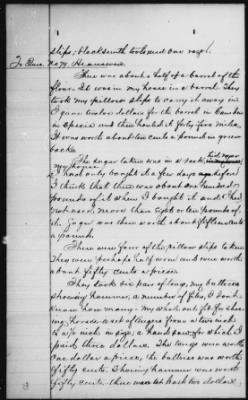 slips; blacksmith tools and one razor.
To Ques. No 79 He answers:
There was about a half of a barrel of the
flour. It was in my house in a barrel. They
took my pillow slips to carry it away in
I gave twelve dollars for the barrel in
in specie and then hauled it forty five miles.
It was worth about ten cents a pound in green
backs.
The sugar taken was in a sack,
my house
I had only bought it a few days before
I think that there was about one hundred
pounds of it when I bought it and I had
not used more than eight or ten pounds of
it. Sugar was then worth about fifteen cents
a pound.
There were four of the pillow slips taken
They were perhaps half worn and were worth
about fifty cents a piece.
They took six pair of tongs, my buttress
shoeing hammer, a number of files, I don't
know how many - my whole outfit for shoe-
ing horses - a set of from a two inch
to a ½ inch in size; a hand saw for which I
paid three dollars. The tongs were worth
one dollar a piece; the buttress was worth
fifty cents. Shoeing hammer was worth
fifty cents. there were at least two dollars